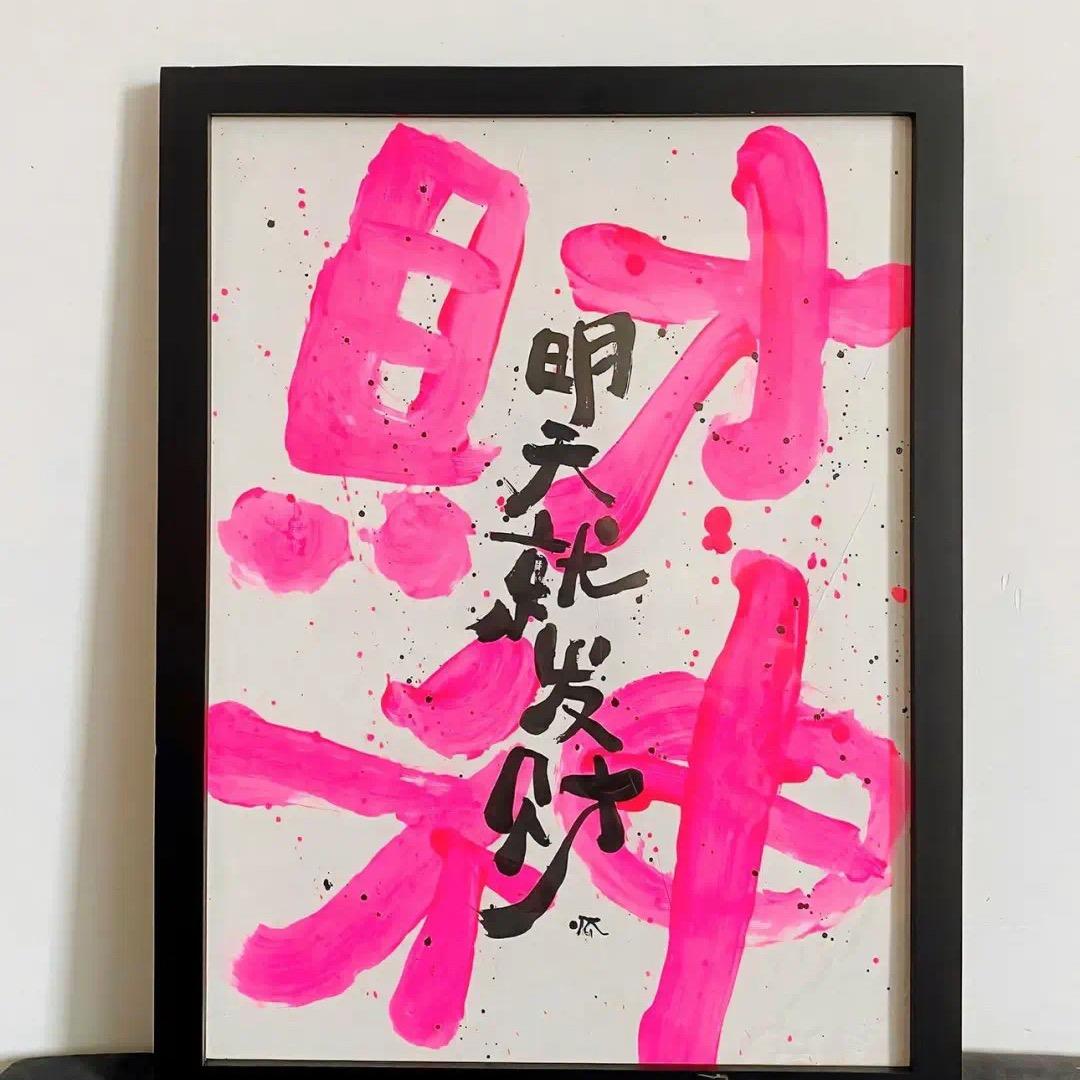 財神
明天就发财